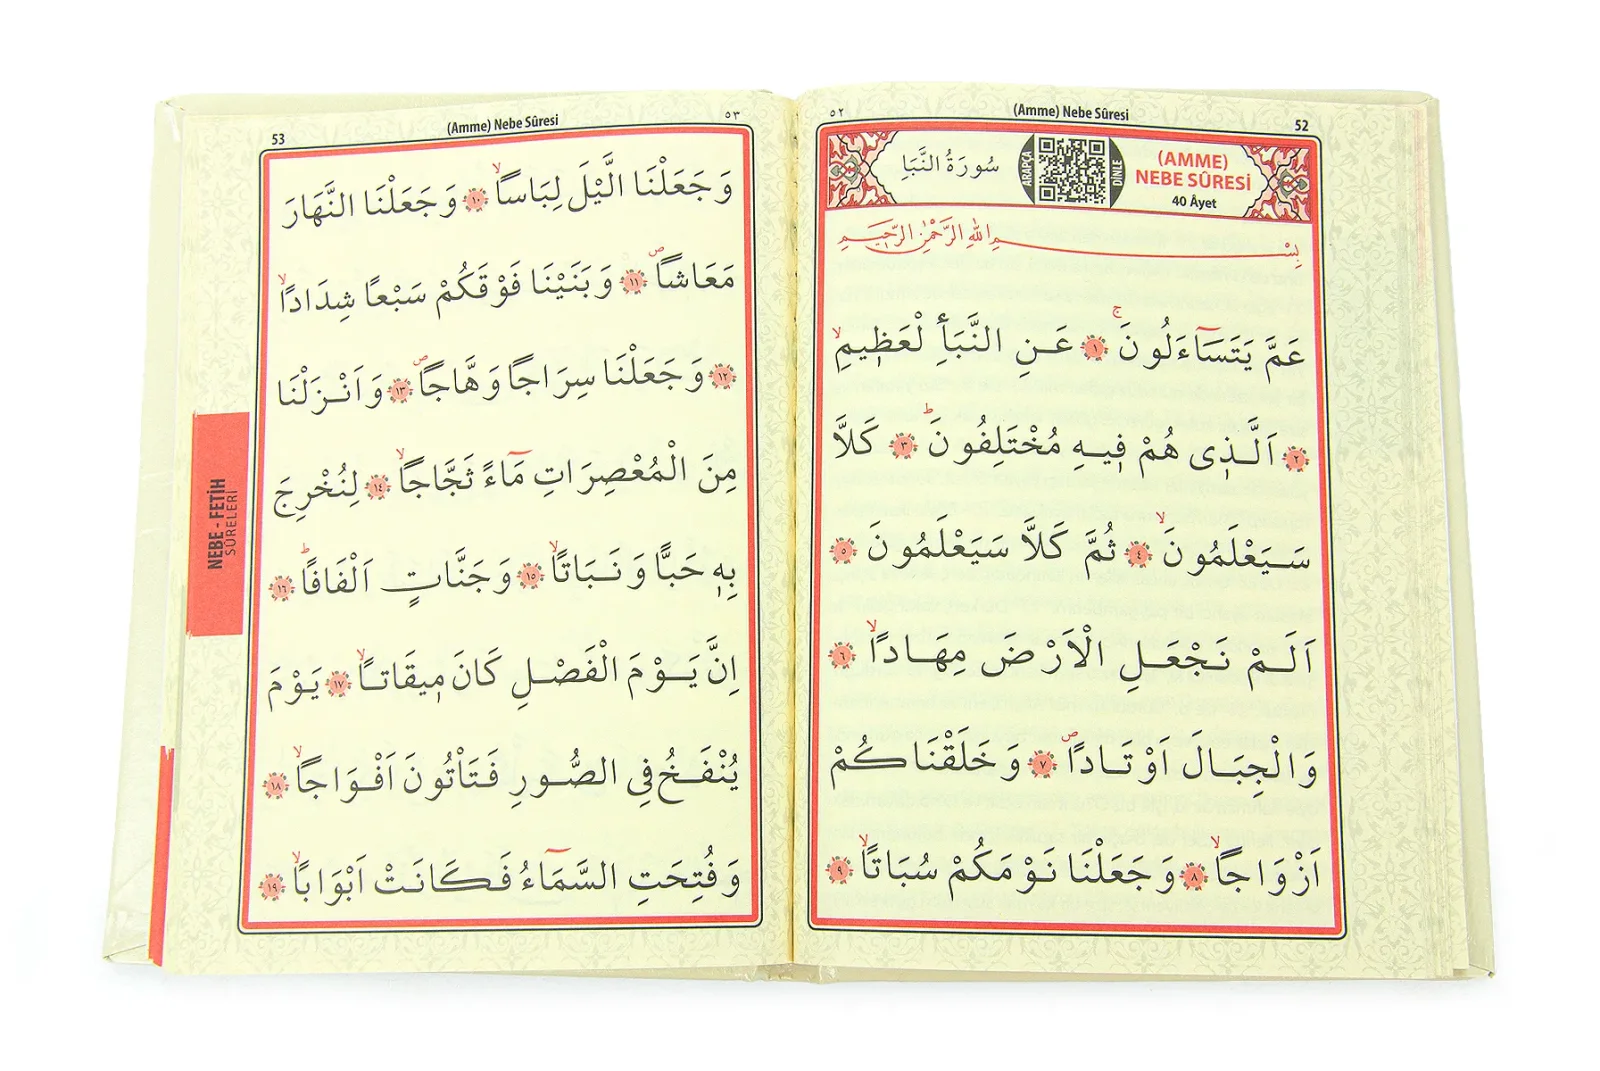 (Amme) Nebe Sûresi
٥٢
52
سُورَةُ النَّبَأِ
ARAPÇA
DİNLE
(AMME)
NEBE SÛRESİ
40 Âyet
بِسْمِ اللهِ الرَّحْمٰنِ الرَّحِيمِ
عَمَّ يَتَسَٓاءَلُونَۚ ﴿١﴾ عَنِ النَّبَأِ الْعَظِيمِۙ
﴿٢﴾ اَلَّذِى هُمْ فِيهِ مُخْتَلِفُونَۜ ﴿٣﴾ كَلاَّ
سَيَعْلَمُونَۙ ﴿٤﴾ ثُمَّ كَلاَّ سَيَعْلَمُونَ ﴿٥﴾
اَلَمْ نَجْعَلِ الْاَرْضَ مِهَادًاۙ ﴿٦﴾
وَالْجِبَالَ اَوْتَادًاۖ ﴿٧﴾ وَخَلَقْنَاكُمْ
اَزْوَاجًاۙ ﴿٨﴾ وَجَعَلْنَا نَوْمَكُمْ سُبَاتًاۙ ﴿٩﴾
53
(Amme) Nebe Sûresi
٥٣
وَجَعَلْنَا الَّيْلَ لِبَاسًاۙ ﴿١٠﴾ وَجَعَلْنَا النَّهَارَ
مَعَاشًاۖ ﴿١١﴾ وَبَنَيْنَا فَوْقَكُمْ سَبْعًا شِدَادًاۙ
﴿١٢﴾ وَجَعَلْنَا سِرَاجًا وَهَّاجًاۖ ﴿١٣﴾ وَاَنْزَلْنَا
مِنَ الْمُعْصِرَاتِ مَٓاءً ثَجَّاجًاۙ ﴿١٤﴾ لِنُخْرِجَ
بِهِ حَبًّا وَنَبَاتًاۙ ﴿١٥﴾ وَجَنَّاتٍ اَلْفَافًاۜ ﴿١٦﴾
اِنَّ يَوْمَ الْفَصْلِ كَانَ مِيقَاتًاۙ ﴿١٧﴾ يَوْمَ
يُنْفَخُ فِى الصُّورِ فَتَأْتُونَ اَفْوَاجًاۙ ﴿١٨﴾
وَفُتِحَتِ السَّمَٓاءُ فَكَانَتْ اَبْوَابًاۙ ﴿١٩﴾
NEBE - FETİH
SÛRELERİ